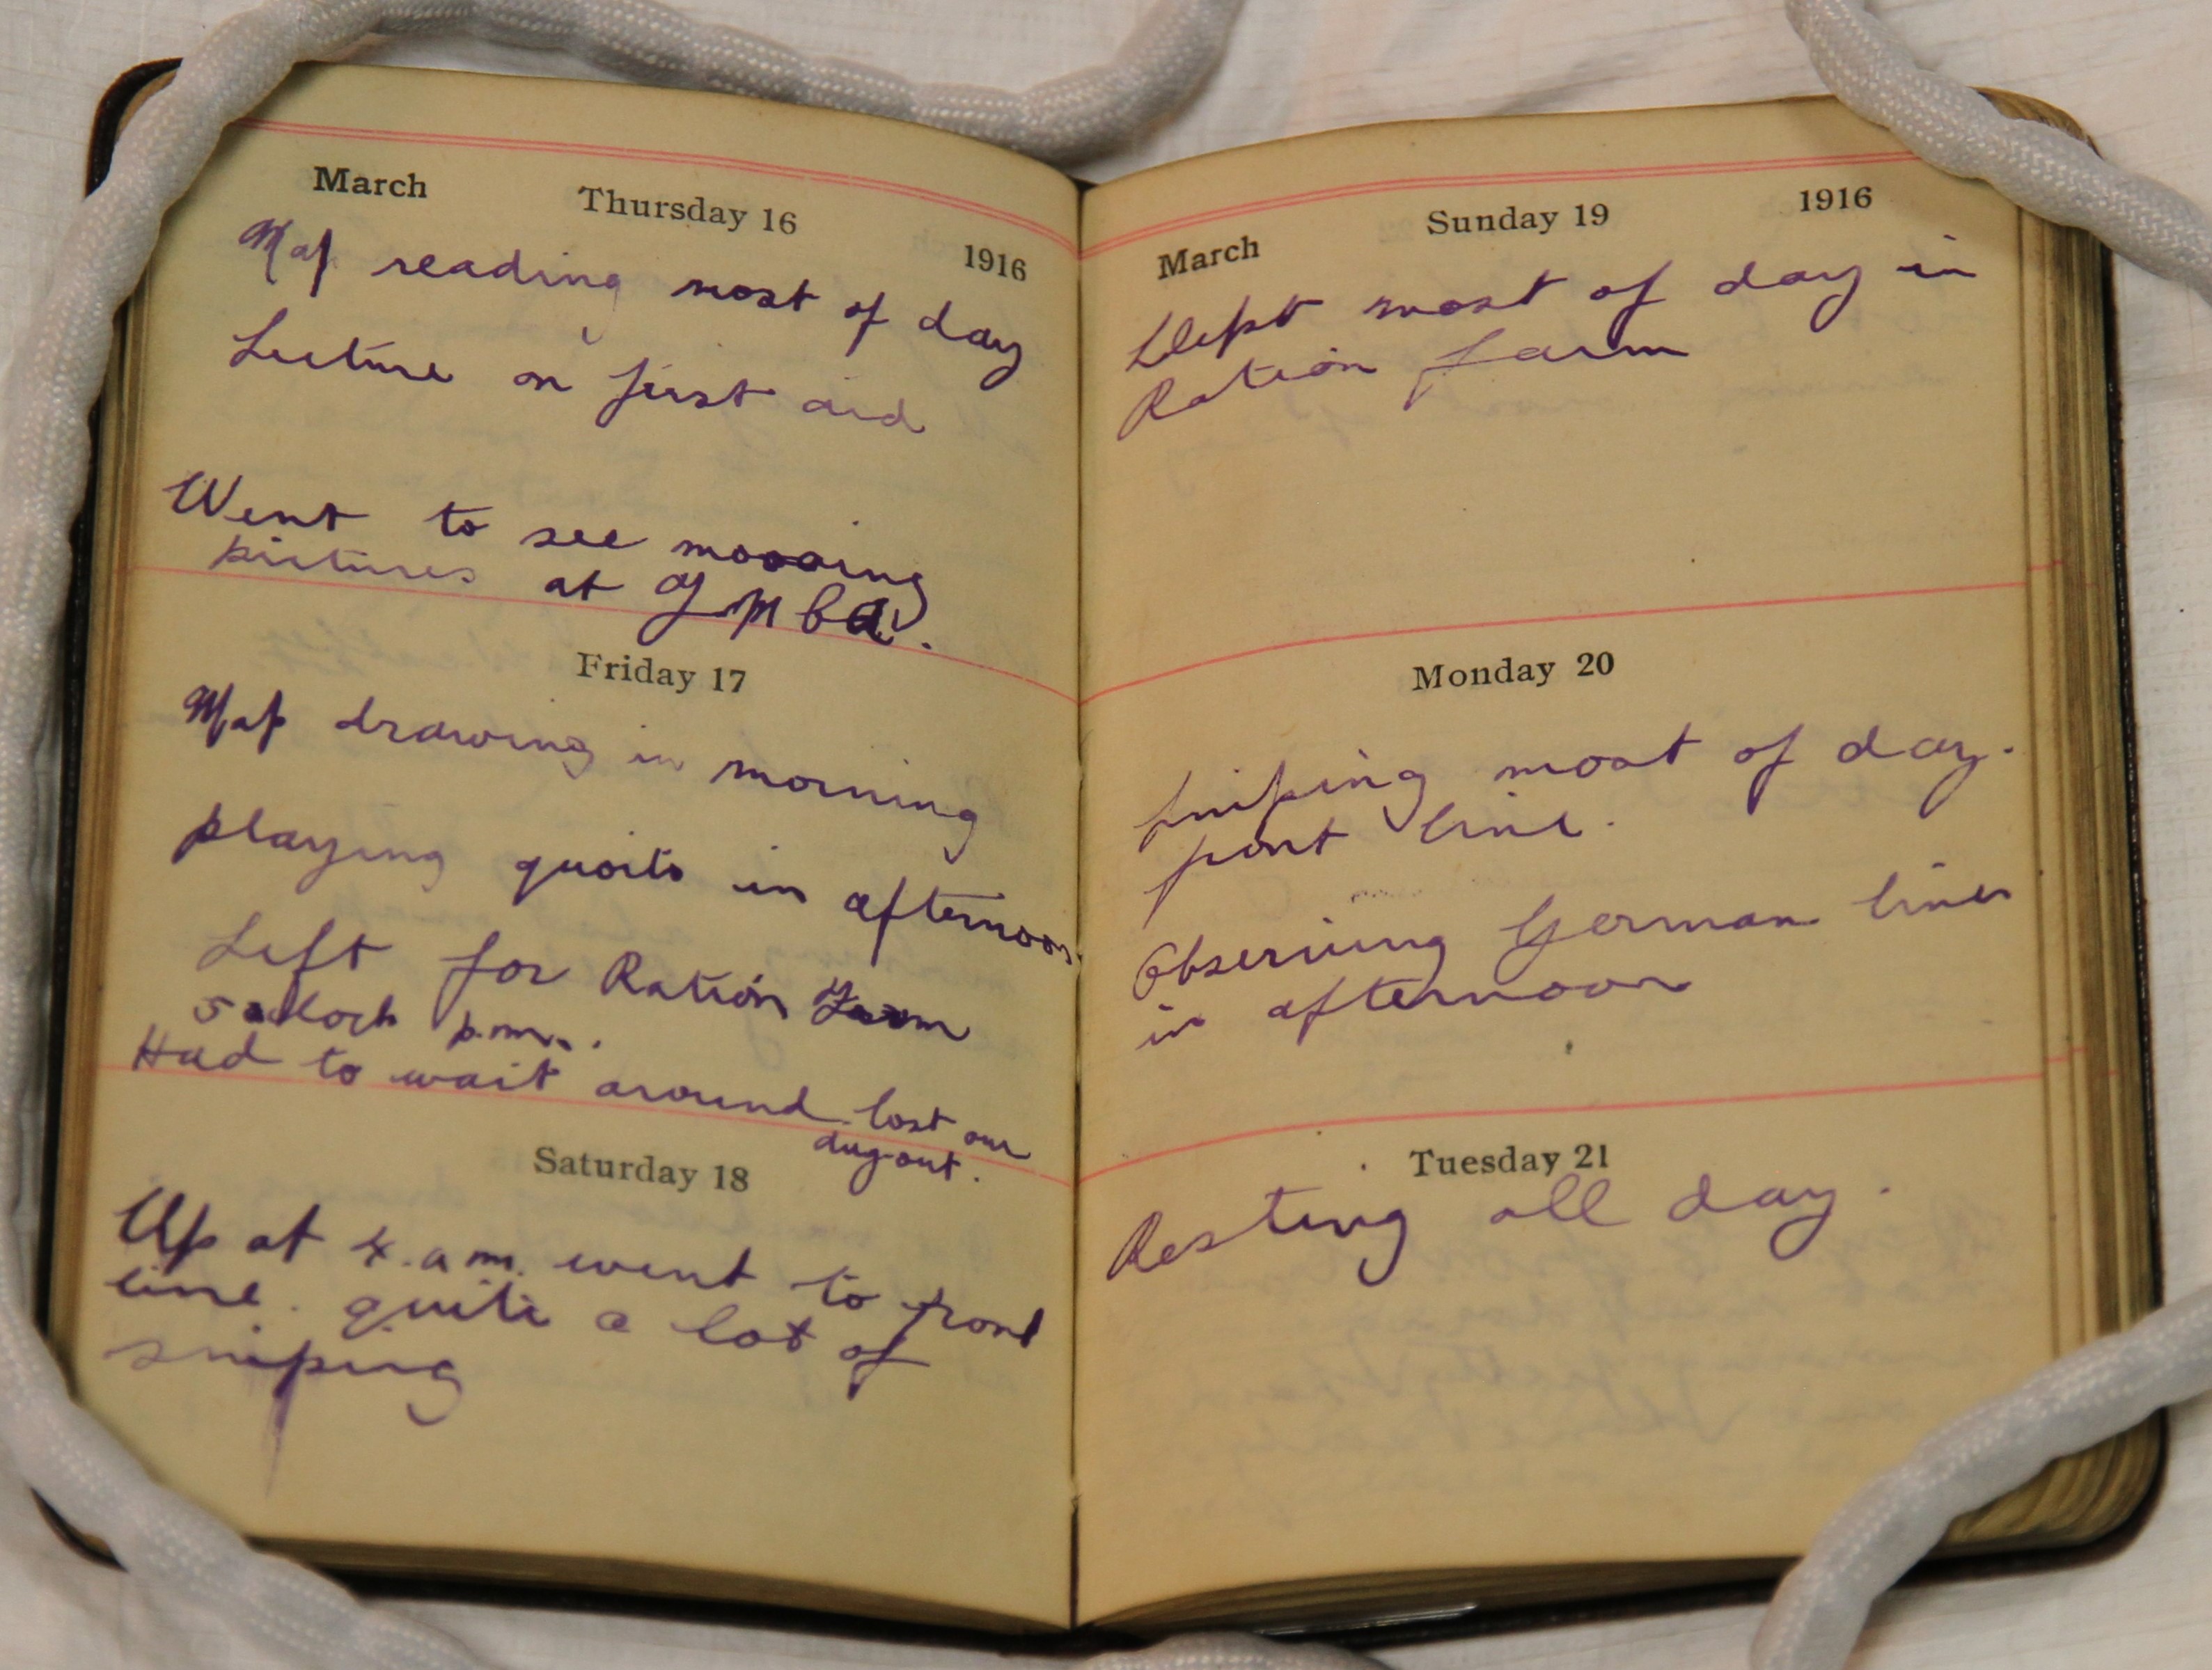 March Thursday 16 1916
Map reading most of day
Lecture on first aid
Went to see mooving
pictures at YMCA.
Friday 17
Map drawing in morning
playing quoits in afternoon
Left for Ration Farm
5 oclock p.m.
Had to wait around lost our
dugout.
Saturday 18
Up at 4.a.m. went to front
line. quite a lot of
sniping
March Sunday 19 1916
Slept most of day in
Ration farm
Monday 20
Sniping most of day.
front line.
Observing German lines
in afternoon
Tuesday 21
Resting all day.